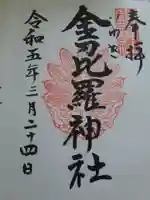 奉拝
金刀比羅神社
令和五年三月二十四日